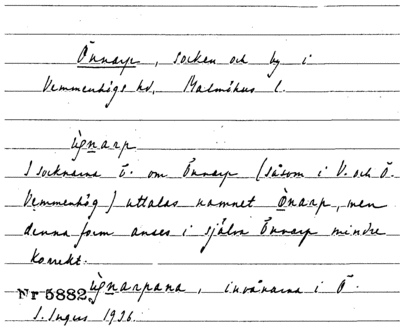 Önnarp, socken och by i
Vemmenhögs hd, Malmöhus l.
ùgnarp
I socknarna t. om Önnarp (såsom i V. och Ö.
Vemmenhög) uttalas namnet Ònarp, men
denna form anses i själva Önnarp mindre
korrekt.
Nr 5882. ùgnarpana, invånarna i Ö.
I. Ingers 1936.